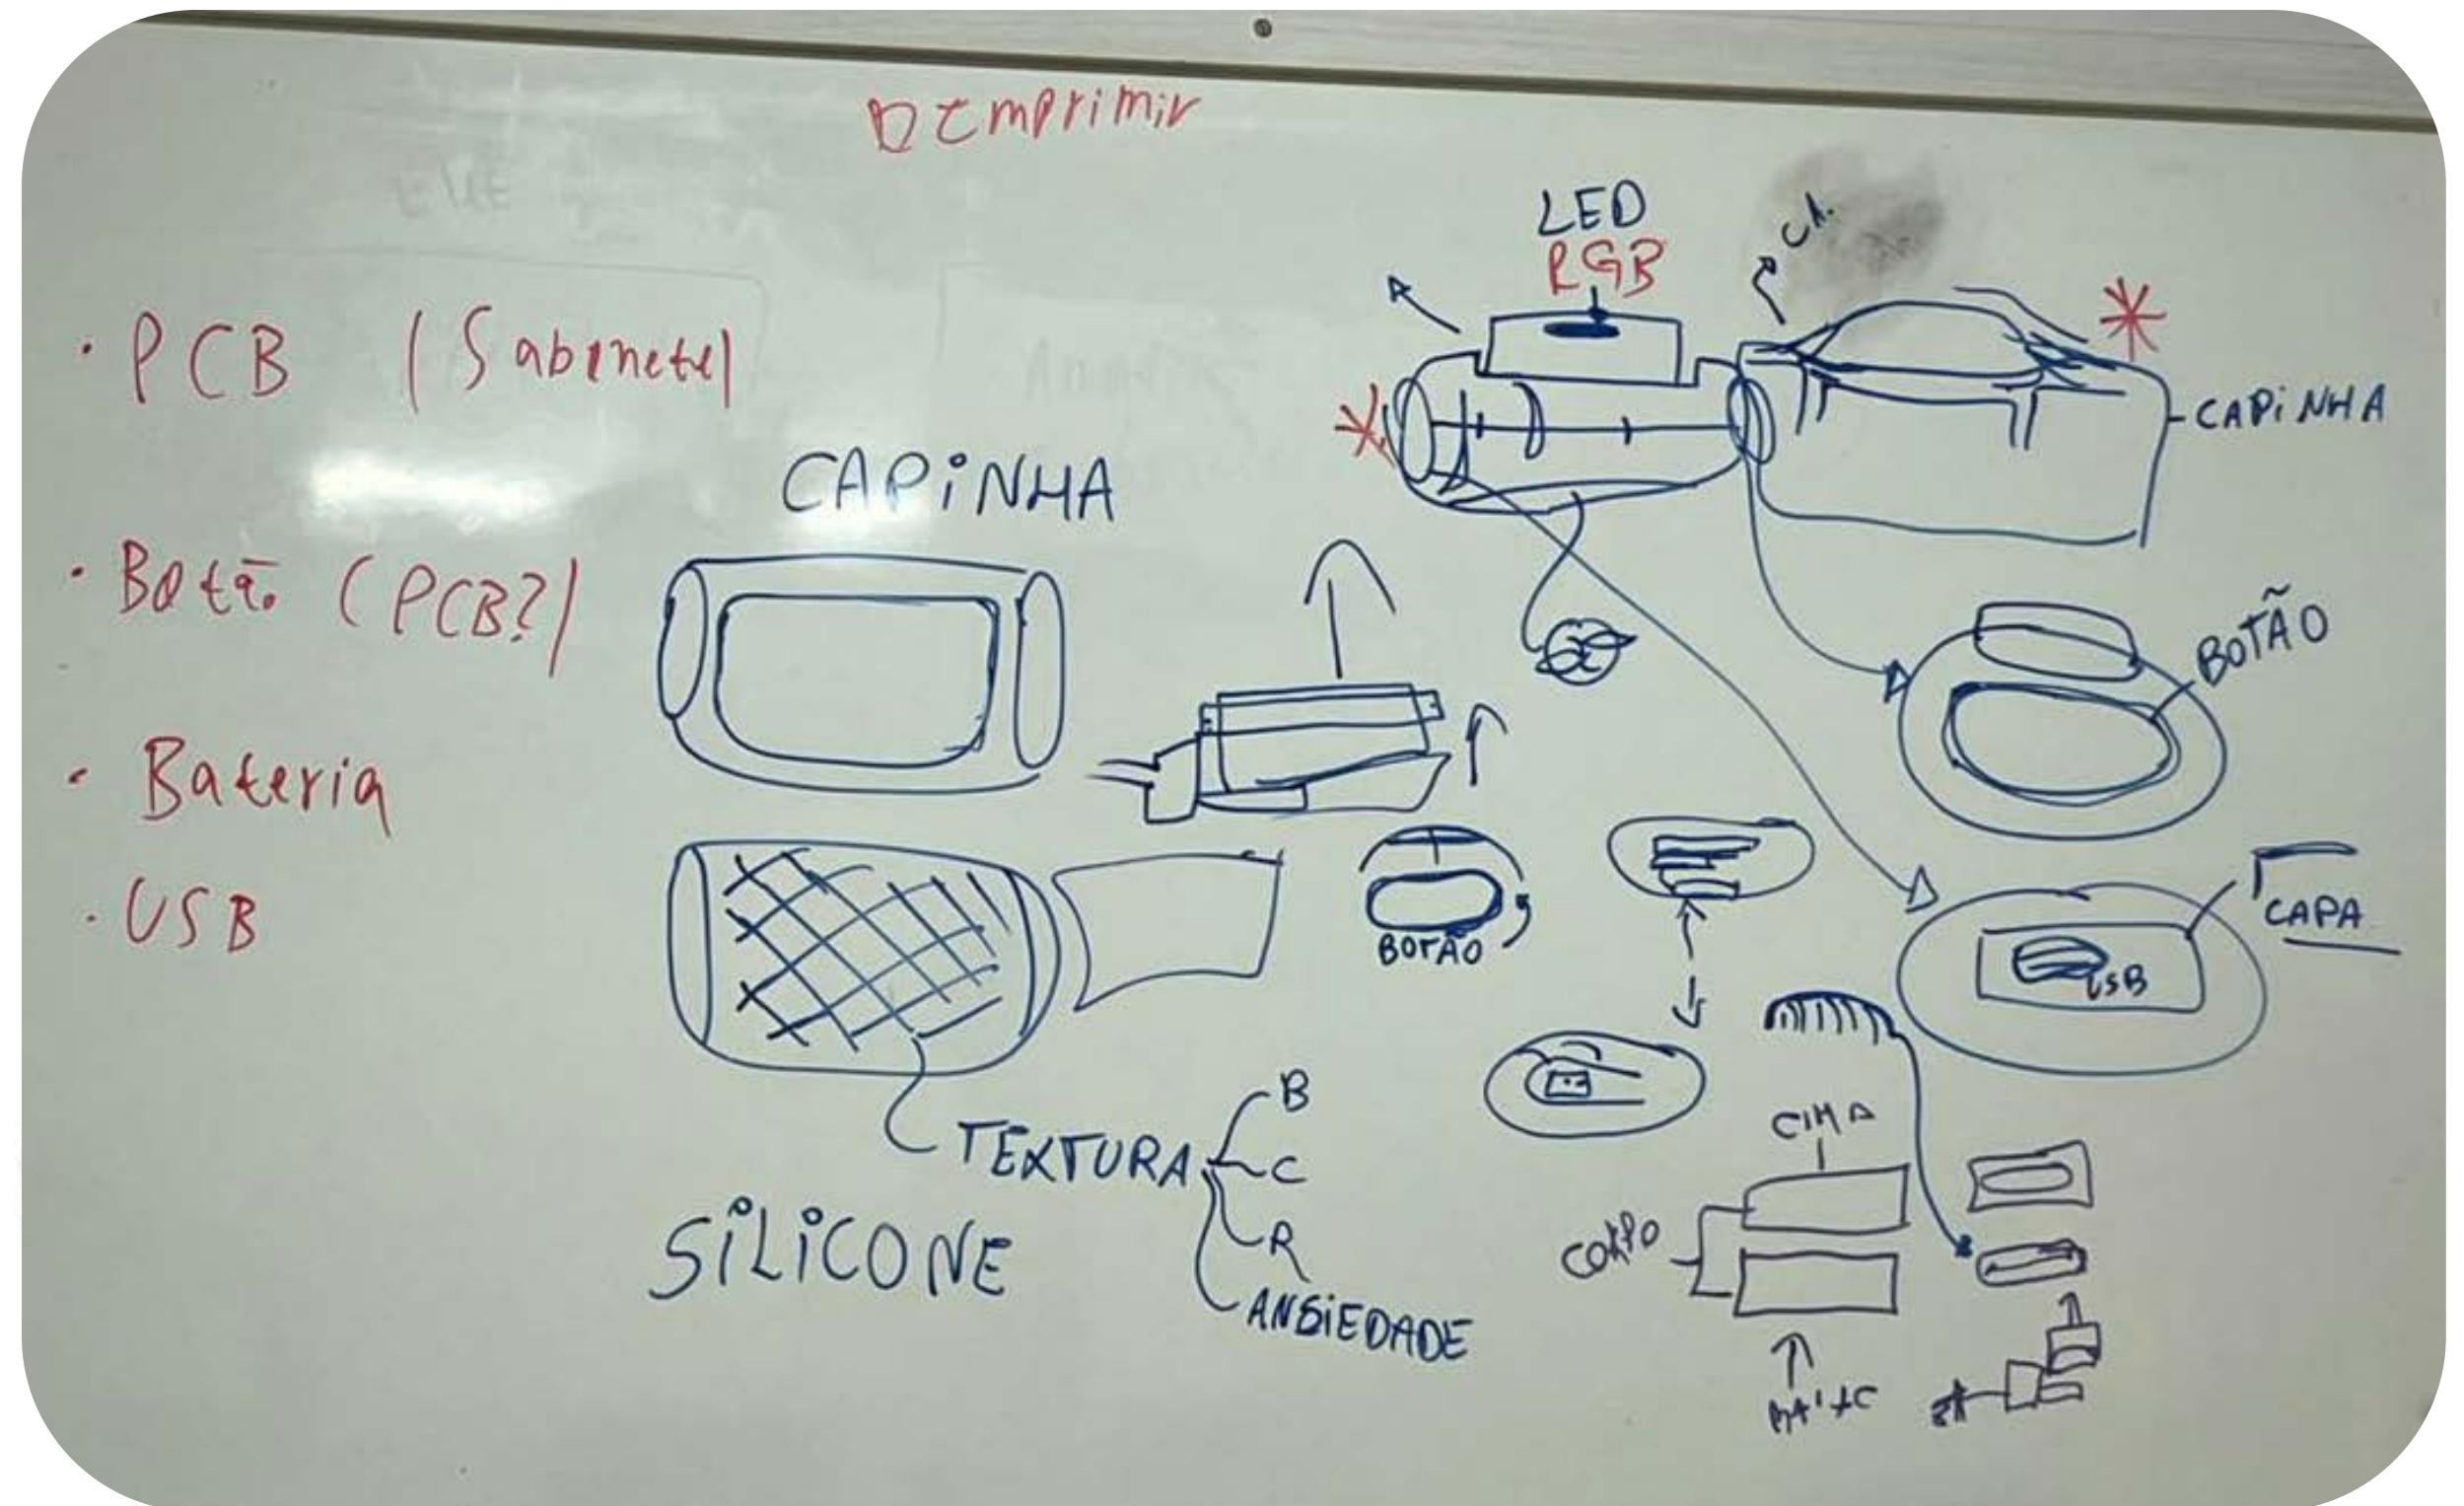 Imprimir
· PCB (Sabonete)
· Botão (PCB?)
· Bateria
· USB
CAPiNHA
LED
RGB
CAPiNHA
BOTÃO
BOTÃO
CAPA
USB
TEXTURA
B
C
R
ANSiEDADE
SiLiCONE
CIMA
CORPO